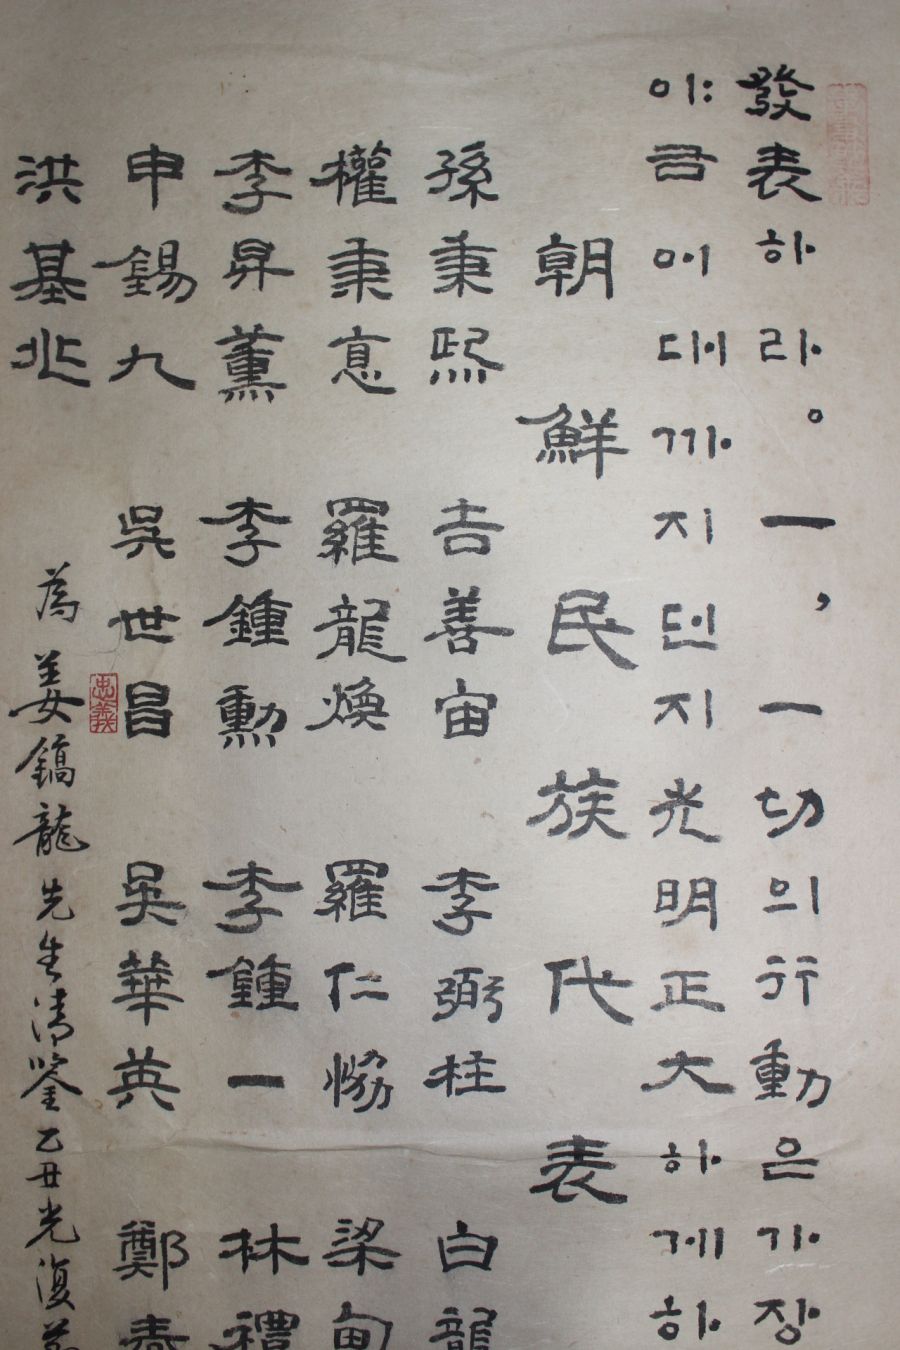 發表하라。一, 一切의行動은가장
이:큼어대까지던지光明正大하게하
朝鮮民族代表
孫秉熙 吉善宙 李弼柱 白龍
權秉悳 羅龍煥 羅仁協 梁甸
李昇薰 李鍾勳 李鍾一 林禮
申錫九 吳世昌 吳華英 鄭春
洪基兆
為姜鎬龍先生清鑒乙丑光復
忠義